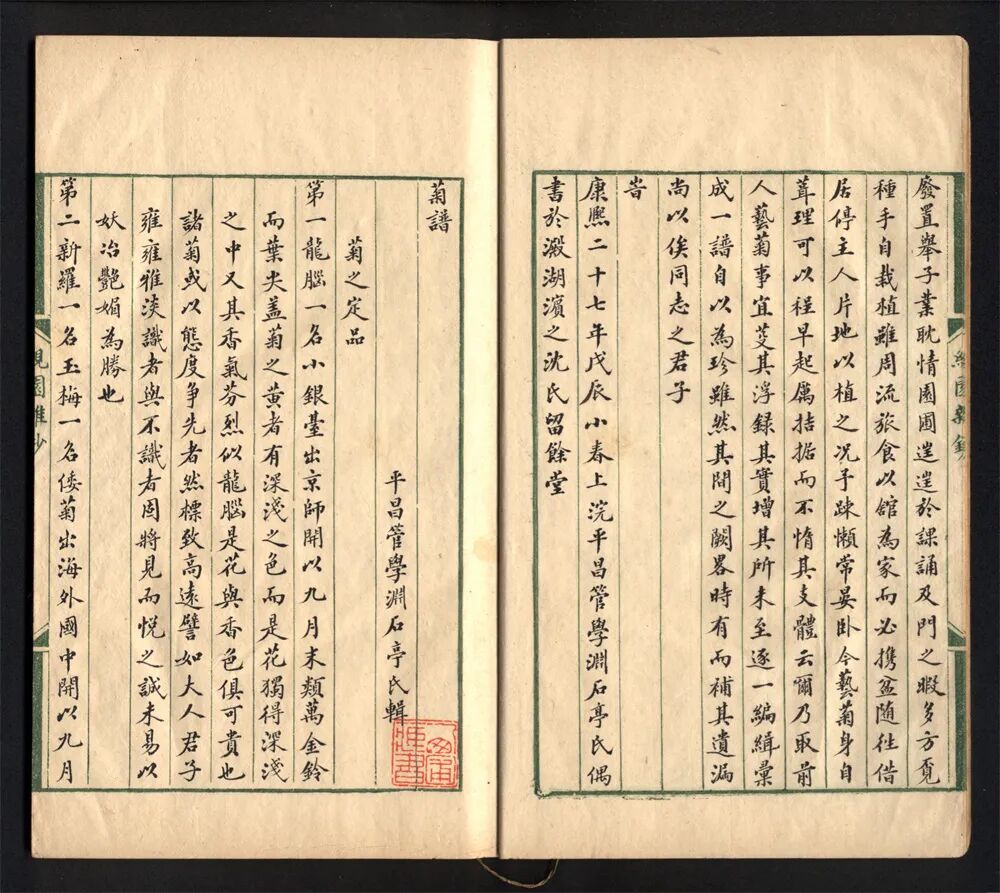 廢置舉子業耽情園圃逍遙於課誦及門之暇多方覓
種手自栽植雖周流旅食以舘為家而必携盆随往借
居停主人片地以植之况予疎懶常晏卧今藝菊身自
葺理可以程早起厲拮据而不惰其支體云爾乃取前
人藝菊事宜芟其浮録其實增其所未至逐一編緝彙
成一譜自以為珍雖然其間之闕畧時有而補其遺漏
尚以俟同志之君子
旹
康熈二十七年戊辰小春上浣平昌管學淵石亭氏偶
書於澱湖濱之沈氏留餘堂
菊譜
平昌管學淵石亭氏輯
菊之定品
第一龍腦一名小銀臺出京師開以九月末類萬金鈴
而葉尖盖菊之黄者有深淺之色而是花獨得深淺
之中又其香氣芬烈似龍腦是花與香色俱可貴也
諸菊或以態度争先者然標致高逺譬如大人君子
雍雍雅淡識者與不識者固將見而悦之誠未易以
妖冶艷媚為勝也
第二新羅一名玉梅一名倭菊出海外國中開以九月